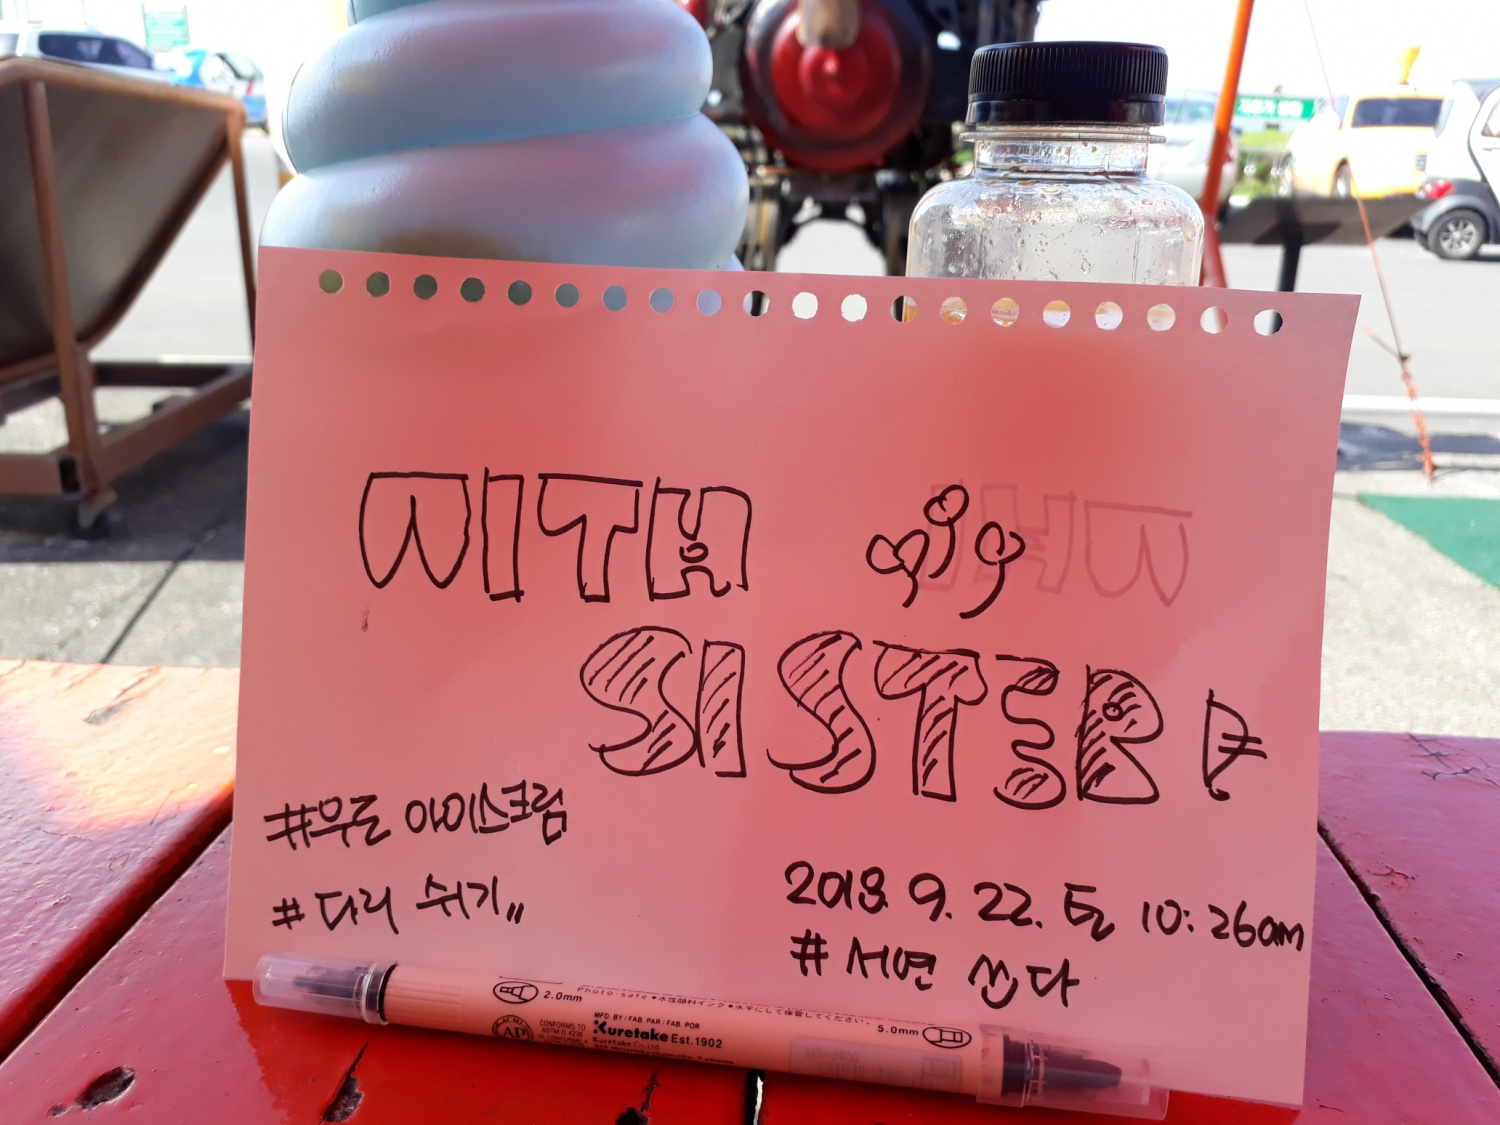 WITH
SISTER
#우도 아이스크림
#다리 쉬기
2018. 9. 22. 토 10:26am
#서연 쓰다
2.0mm
Photo-safe • 水性顔料インク • 水平にして保管してください。
5.0mm
AP
CONFORMS TO
ASTM D 4236
MFD. BY / FAB. PAR / FAB. POR
Kuretake Est.1902
Kuretake Co.,Ltd.